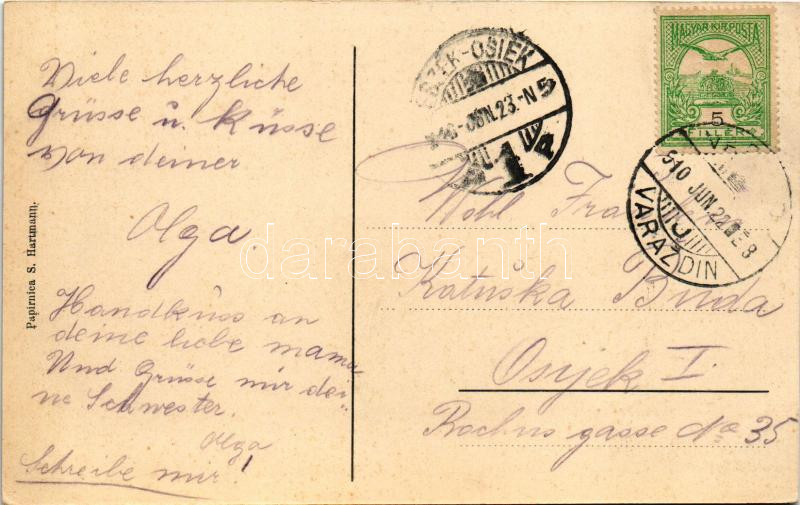 Viele herzliche
Grüsse u. Küsse
von deiner
Olga.
Handkuss an
deine liebe mama
Und Grüsse mir dei-
ne Schwester.
Olga
Schreibe mir!
Papirnica S. Hartmann.
ESZÉK-OSIEK
JUN. 23.-N 5
1
MAGYAR KIR. POSTA
5
FILLÉR
910 JUN. 22
VARAŽDIN
Wohl
Katuška Buda
Osijek I.
Rochus gasse No 35
darabanth